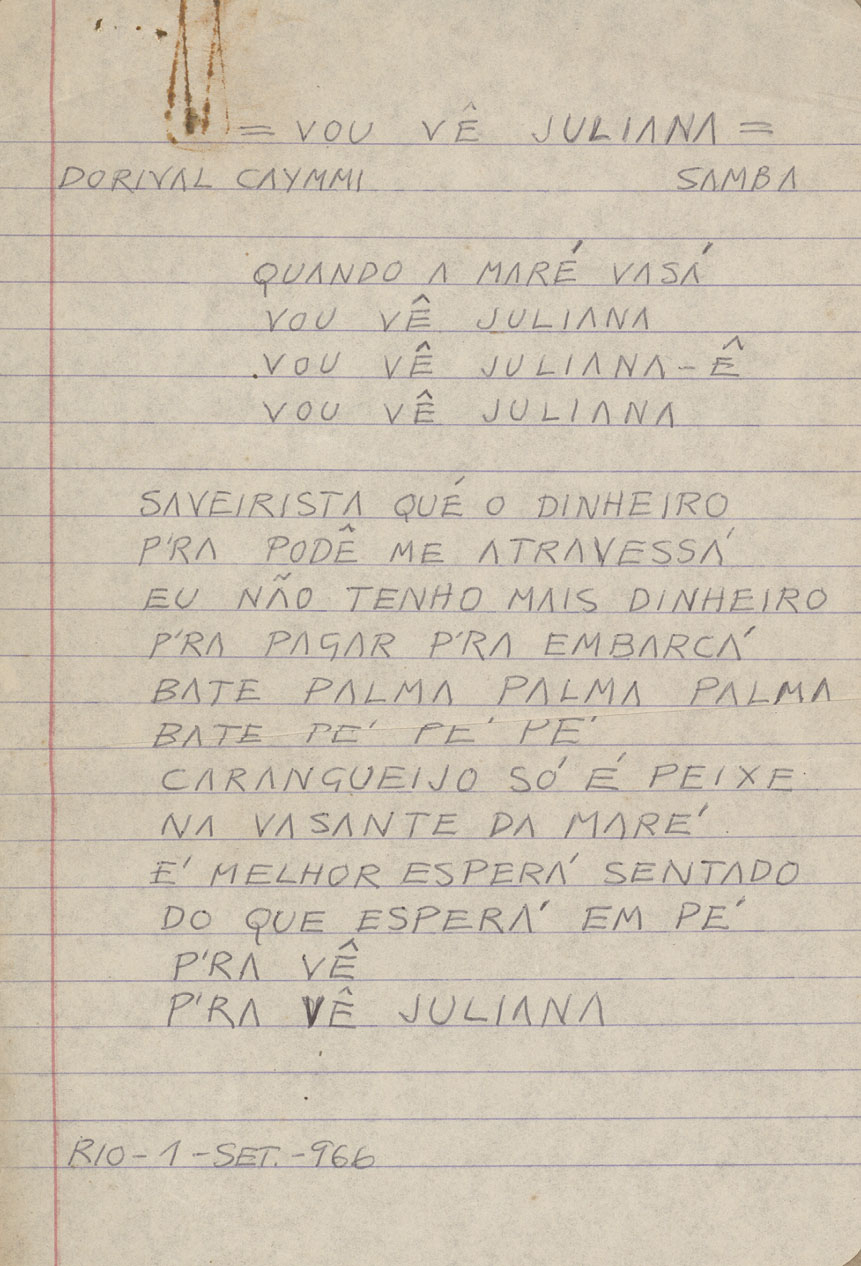 = VOU VÊ JULIANA =
DORIVAL CAYMMI SAMBA
QUANDO A MARÉ VASÁ
VOU VÊ JULIANA
VOU VÊ JULIANA-Ê
VOU VÊ JULIANA
SAVEIRISTA QUÉ O DINHEIRO
P'RA PODÊ ME ATRAVESSÁ
EU NÃO TENHO MAIS DINHEIRO
P'RA PAGAR P'RA EMBARCÁ
BATE PALMA PALMA PALMA
BATE PÉ PÉ PÉ
CARANGUEIJO SÓ É PEIXE
NA VASANTE DA MARÉ
É MELHOR ESPERÁ SENTADO
DO QUE ESPERÁ EM PÉ
P'RA VÊ
P'RA VÊ JULIANA
RIO-1-SET.-966